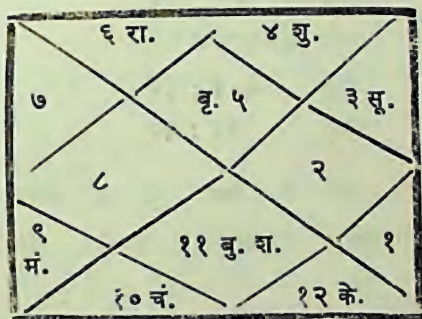 ६ रा. ४ शु.
७ बृ. ५ ३ सू.
८ २
९ ११ बु. श. १
मं.
१० चं. १२ के.